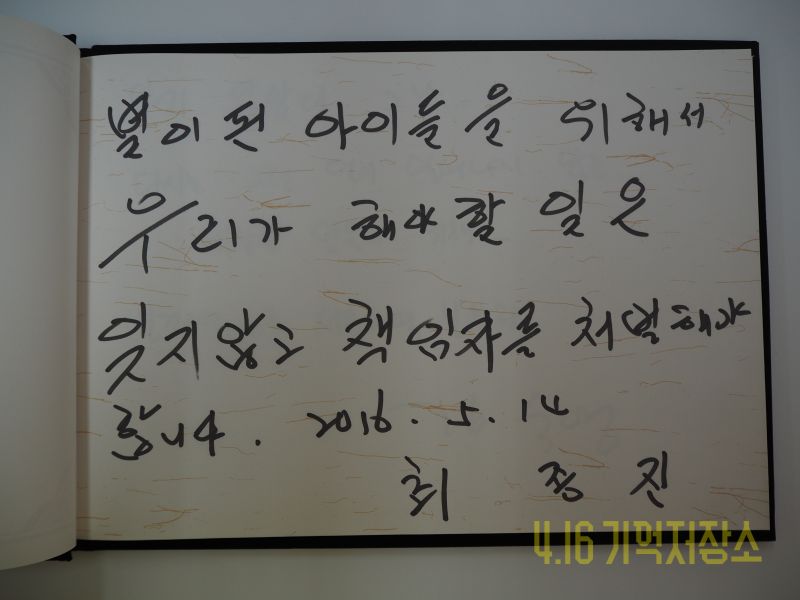 별이 된 아이들을 위해서
우리가 해야 할 일은
잊지않고 책임자를 처벌해야
합니다. 2016. 5. 14
최종진
4.16 기억저장소